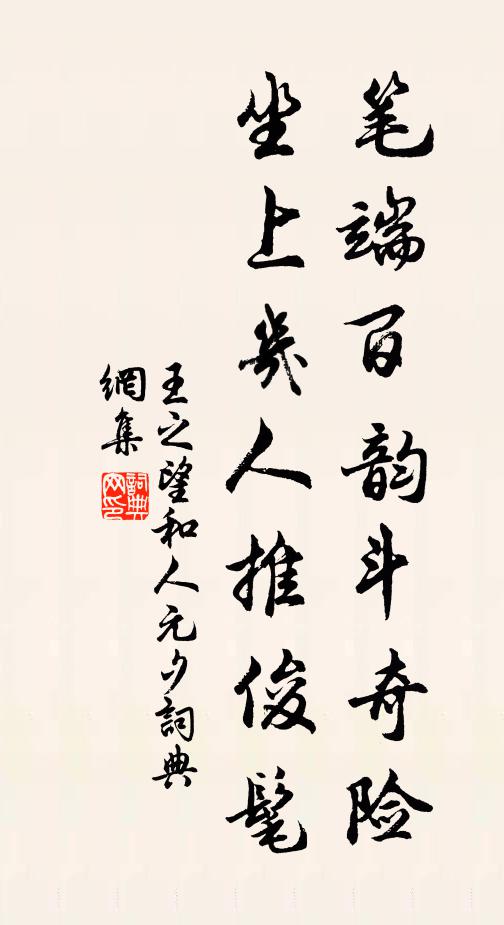 笔端百韵斗奇险
坐上几人推俊髦
王之望和人元夕詞典
網集
詞典
网印